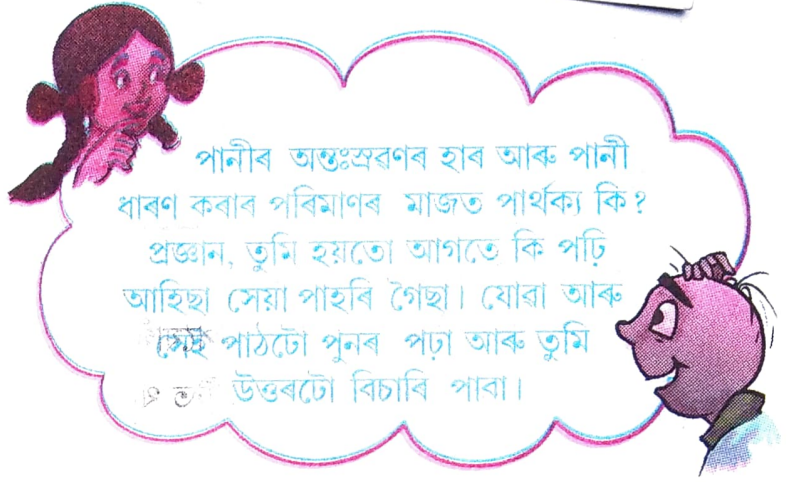 পানীৰ অন্তঃস্ৰৱণৰ হাৰ আৰু পানী
ধাৰণ কৰাৰ পৰিমাণৰ মাজত পাৰ্থক্য কি?
প্ৰজ্ঞান, তুমি হয়তো আগতে কি পঢ়ি
আহিছা সেয়া পাহৰি গৈছা। যোৱা আৰু
সেই পাঠটো পুনৰ পঢ়া আৰু তুমি
উত্তৰটো বিচাৰি পাবা।